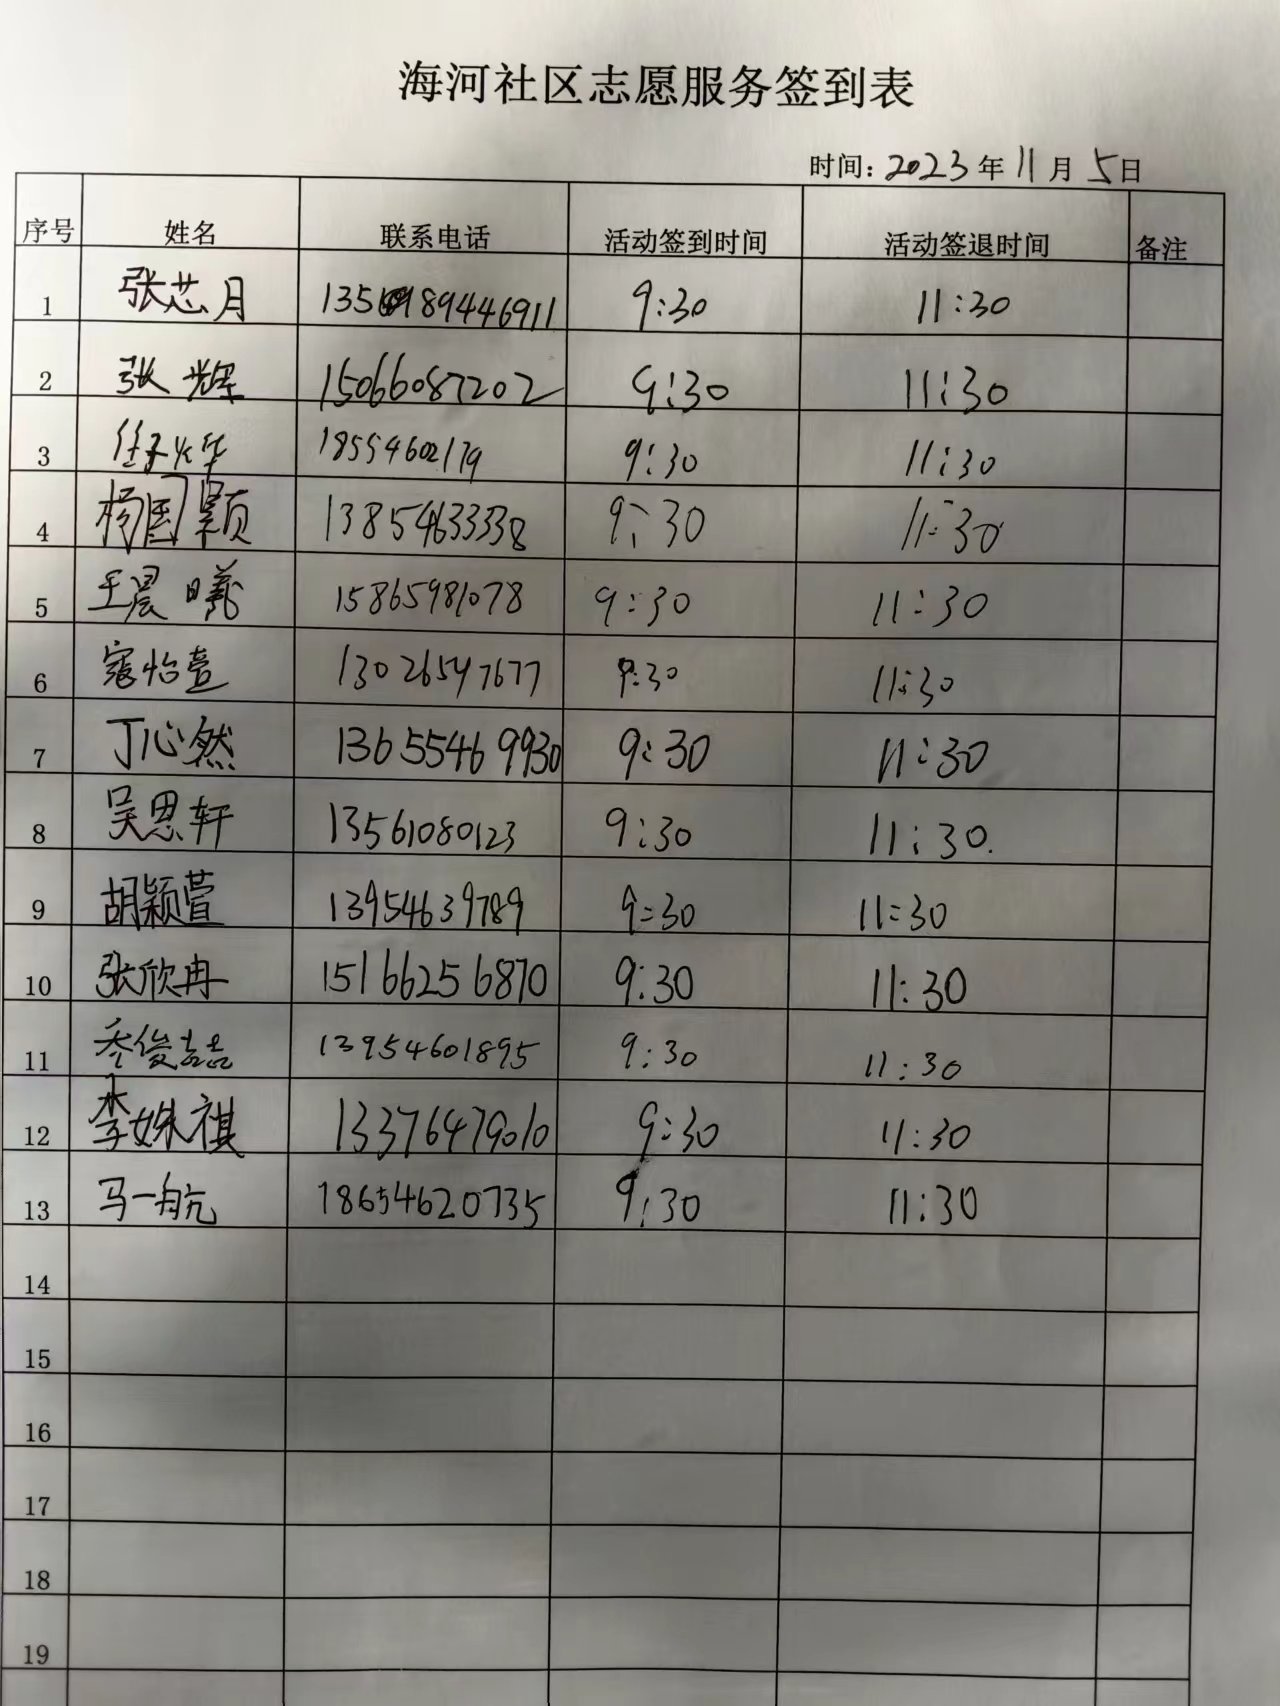 海河社区志愿服务签到表
时间: 2023 年 11 月 5 日
序号 姓名 联系电话 活动签到时间 活动签退时间 备注
1 张芯月 9:30 11:30
2 张辉 15066087202 9:30 11:30
3 18554602179 9:30 11:30
4 杨国颖 13854633338 9:30 11:30
5 王晨曦 15865981078 9:30 11:30
6 寇怡萱 13026547677 9:30 11:30
7 丁心然 13655469930 9:30 11:30
8 吴思轩 13561080123 9:30 11:30.
9 胡颖萱 13954639789 9:30 11:30
10 张欣冉 15166256870 9:30 11:30
11 乔俊喆 13954601895 9:30 11:30
12 李姝祺 13376479010 9:30 11:30
13 马一航 18654620735 9:30 11:30
14
15
16
17
18
19